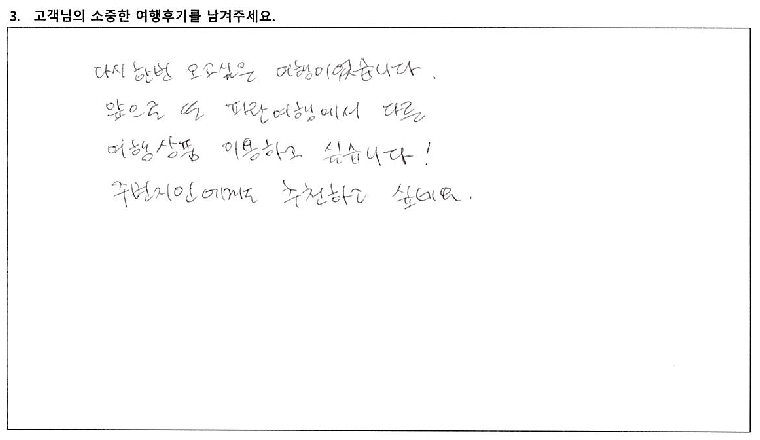 3. 고객님의 소중한 여행후기를 남겨주세요.
다시 한번 오고싶은 여행이었습니다.
앞으로 또 파란여행에서 다른
여행상품 이용하고 싶습니다!
주변지인에게도 추천하고 싶네요.